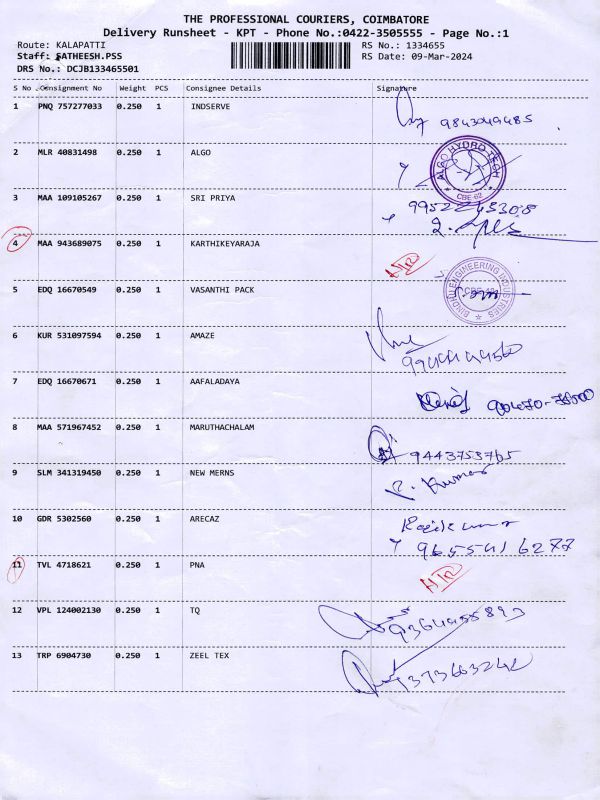 THE PROFESSIONAL COURIERS, COIMBATORE
Delivery Runsheet - KPT - Phone No.:0422-3505555 - Page No.:1
Route: KALAPATTI
Staff: SATHEESH.PSS
DRS No.: DCJB133465501
RS No.: 1334655
RS Date: 09-Mar-2024
S No Consignment No Weight PCS Consignee Details Signature
1 PNQ 757277033 0.250 1 INDSERVE
9843049485
2 MLR 40831498 0.250 1 ALGO
ALGO HYDRO TECH
CBE-62
3 MAA 109105267 0.250 1 SRI PRIYA
9952245308
4 MAA 943689075 0.250 1 KARTHIKEYARAJA
5 EDQ 16670549 0.250 1 VASANTHI PACK
ENGINEERING INDUSTRIES
6 KUR 531097594 0.250 1 AMAZE
7 EDQ 16670671 0.250 1 AAFALADAYA
8 MAA 571967452 0.250 1 MARUTHACHALAM
9443753765
9 SLM 341319450 0.250 1 NEW MERNS
R. Kumar
10 GDR 5302560 0.250 1 ARECAZ
9655416277
11 TVL 4718621 0.250 1 PNA
12 VPL 124002130 0.250 1 TQ
13 TRP 6904730 0.250 1 ZEEL TEX